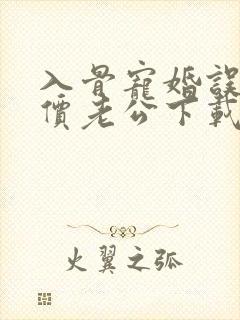 入骨寵婚誤
價老公下載
火翼之弧